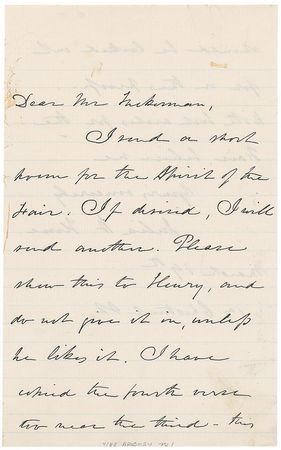 Dear Mr Tuckerman,
I send a short
poem for the Spirit of the
Fair. If desired, I will
send another. Please
show this to Henry, and
do not give it in, unless
he likes it. I have
copied the fourth verse
too near the third - this